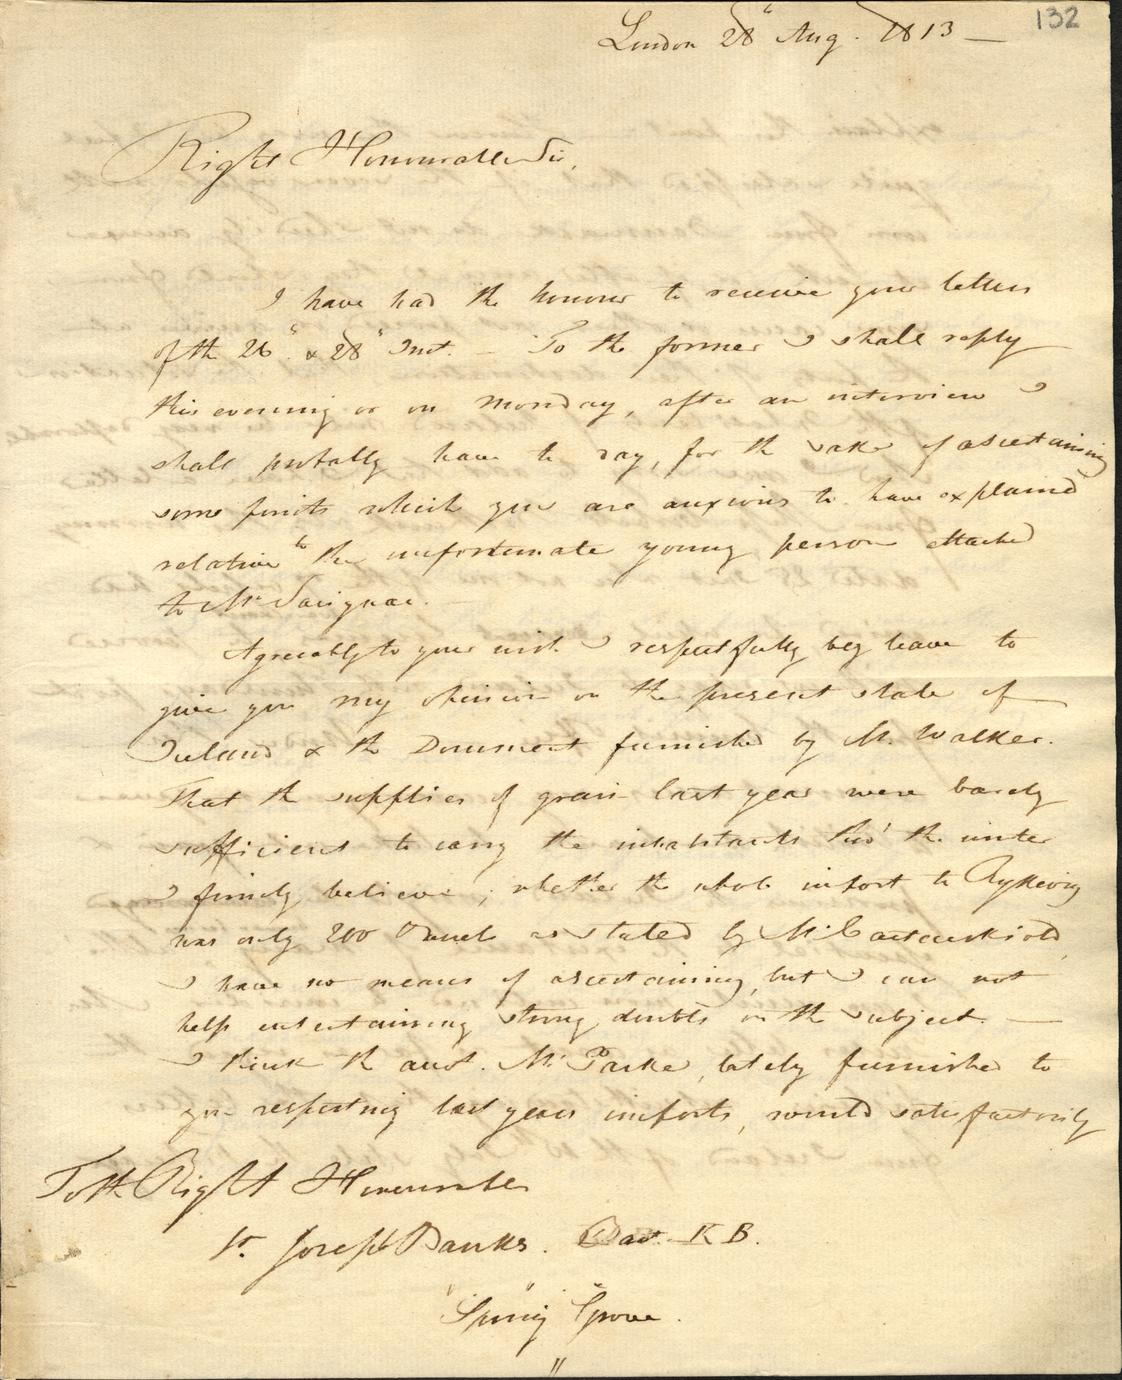 132
London 28" Aug. 1813 —
Right Honourable Sir,
I have had the honour to receive your letters
of the 26" & 28" Inst. — To the former I shall reply
this evening or on Monday, after an interview I
shall probably have to day, for the sake of ascertaining
some points which you are anxious to have explained
relative to the unfortunate young person attached
to Mr Savignac. —
Agreeably to your wish I respectfully beg leave to
give you my opinion on the present state of
Iceland & the Document furnished by Mr. Walker.
That the supplies of grain last year were barely
sufficient to carry the inhabitants thro' the winter
I firmly believe; whether the whole import to Rykevig
was only 200 Barrels as stated by Mr. Castenskiold,
I have no means of ascertaining, but I can not
help entertaining strong doubts on the subject. —
I think the acct. Mr. Parke, lately furnished to
you respecting last years imports, would satisfactorily
To the Right Honourable
Sr. Joseph Banks. Bart. K B.
"Spring" Grove.
"